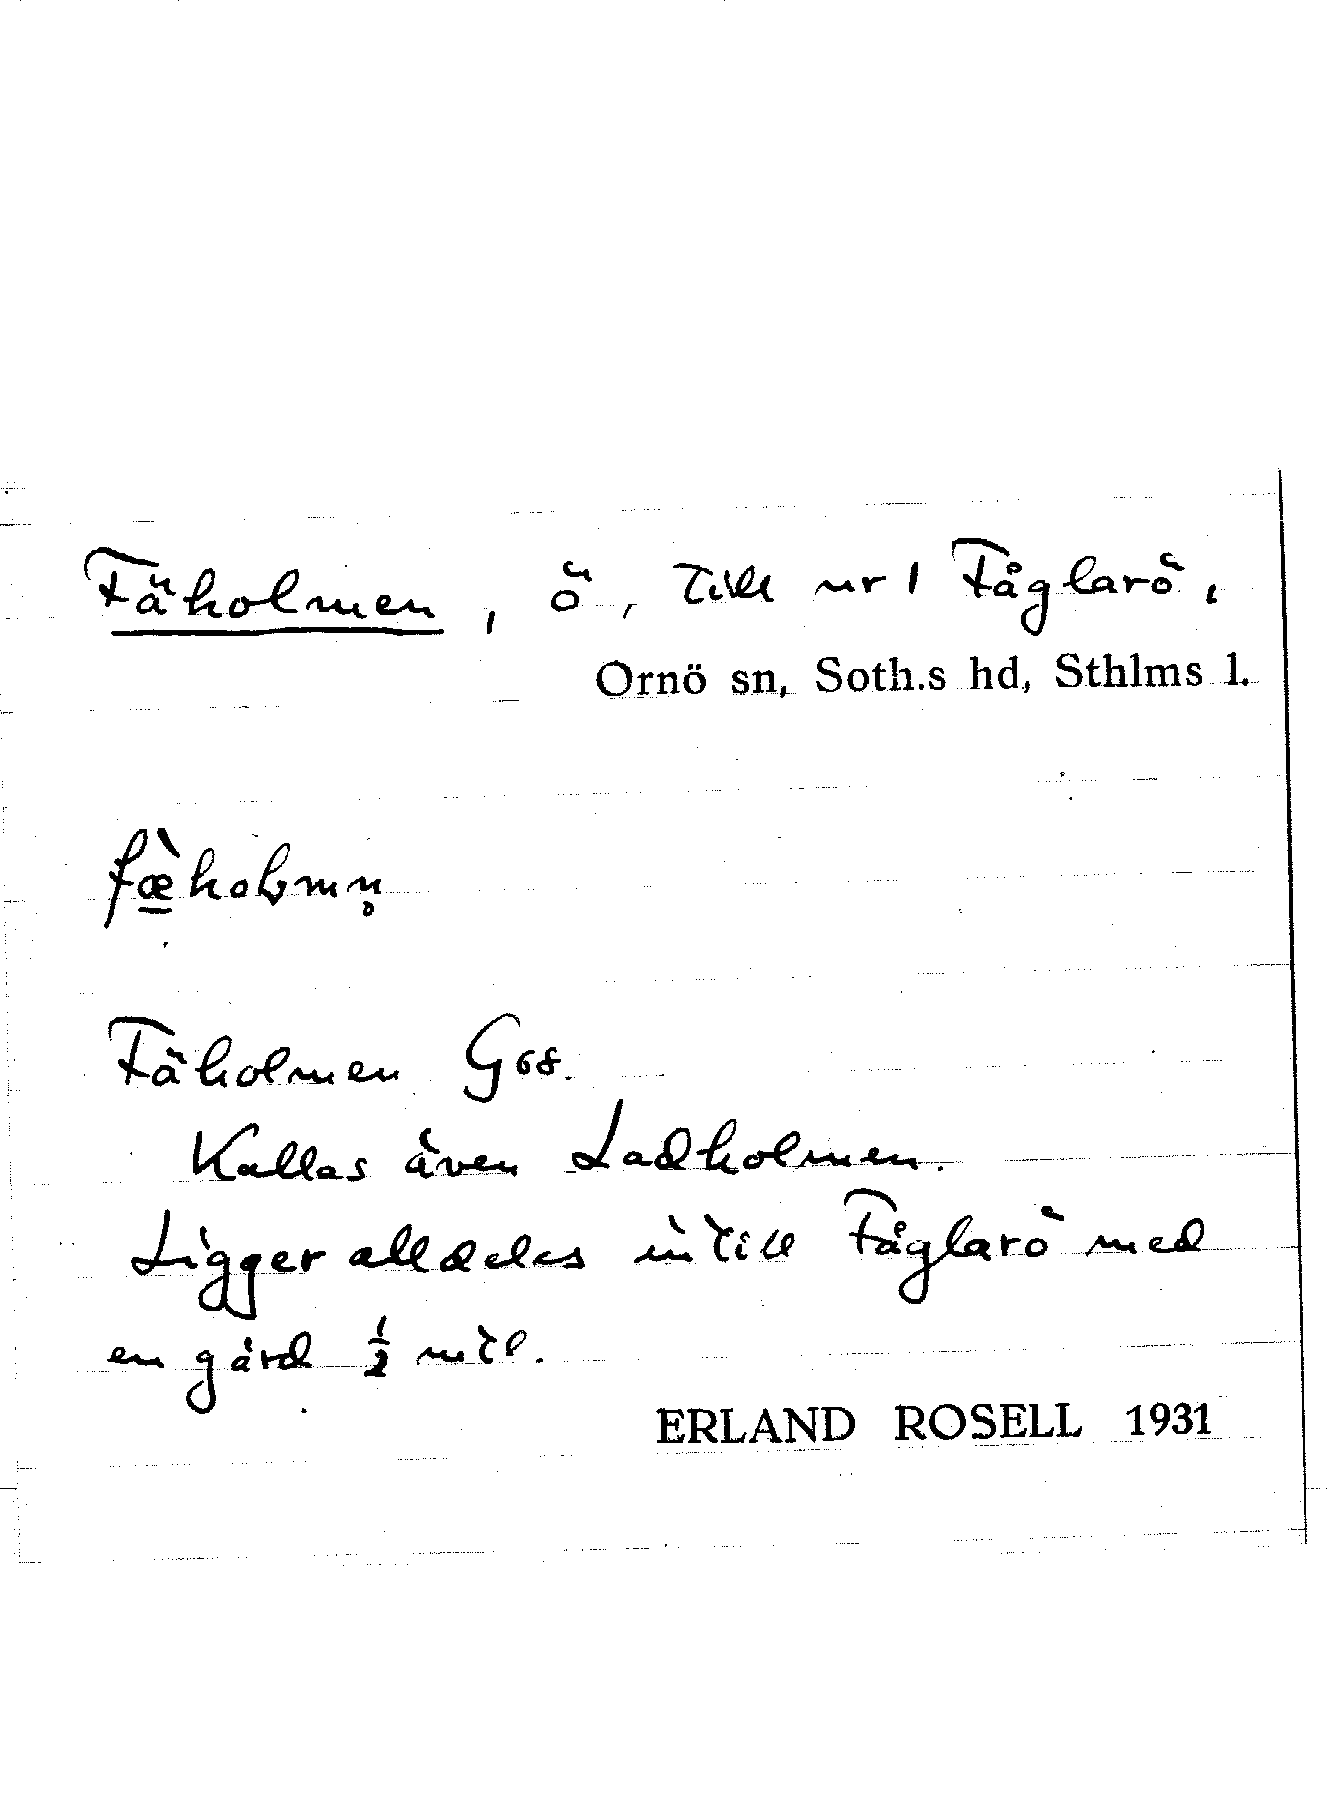 Fäholmen, ö, till nr 1 Fåglarö,
Ornö sn, Soth.s hd, Sthlms l.
fæ̀holmn̥
Fäholmen G68.
Kallas även Ladholmen.
Ligger alldeles intill Fåglarö med
en gård ½ mtl.
ERLAND ROSELL 1931